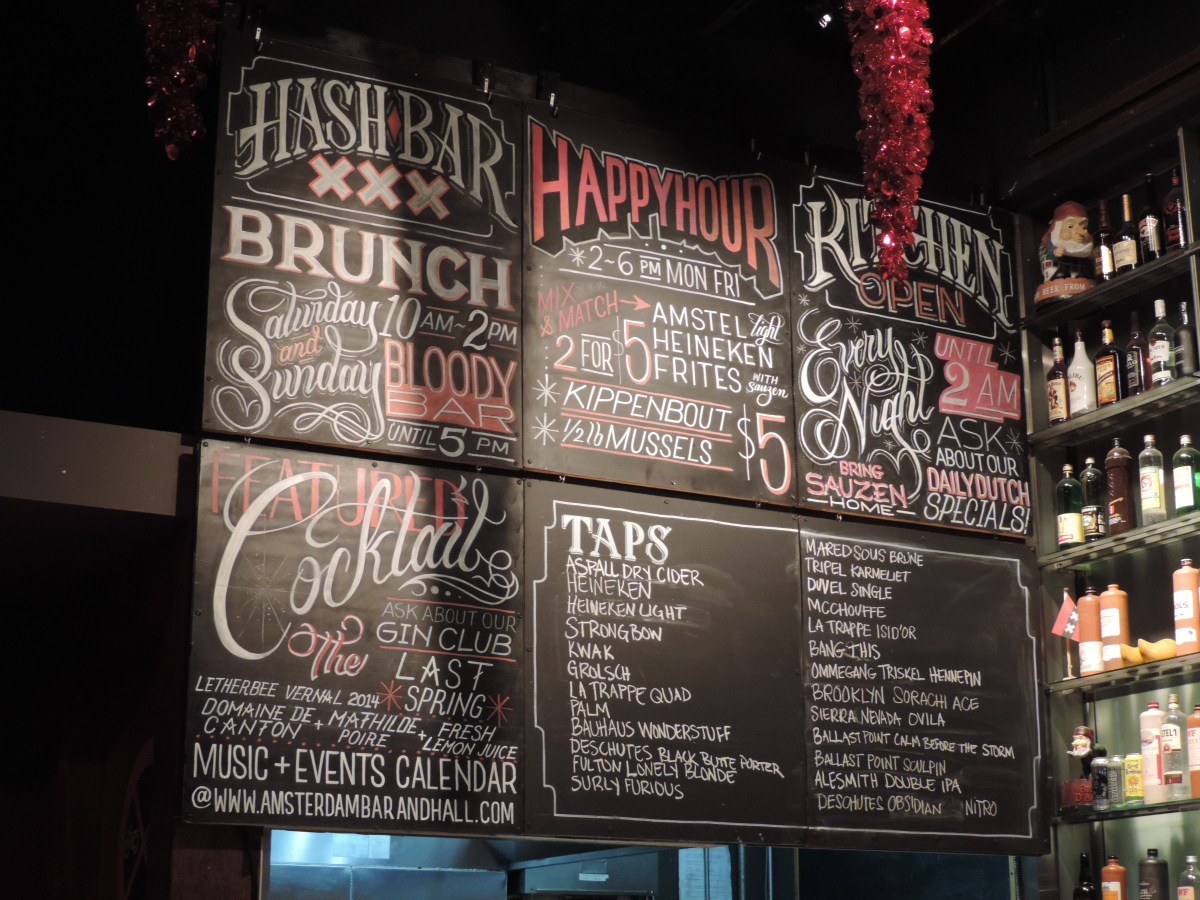 HASH BAR
XXX
BRUNCH
Saturday
and
Sunday
10 AM~2PM
BLOODY
BAR
UNTIL 5 PM
HAPPYHOUR
2~6 PM MON FRI
MIX
& MATCH
2 FOR $5
AMSTEL light
HEINEKEN
FRITES WITH sauzen
KIPPENBOUT
1/2 lb MUSSELS
$5
KITCHEN
OPEN
Every
Night
UNTIL
2 AM
BRING
SAUZEN
HOME
ASK
ABOUT OUR
DAILY DUTCH
SPECIALS!
FEATURED
Cocktail
ASK ABOUT OUR
GIN CLUB
The
LAST
SPRING
LETHERBEE VERNAL 2014
DOMAINE DE CANTON + MATHILDE POIRE + FRESH LEMON JUICE
MUSIC + EVENTS CALENDAR
@WWW.AMSTERDAMBARANDHALL.COM
TAPS
ASPALL DRY CIDER
HEINEKEN
HEINEKEN LIGHT
STRONGBOW
KWAK
GROLSCH
LA TRAPPE QUAD
PALM
BAUHAUS WONDERSTUFF
DESCHUTES BLACK BUTTE PORTER
FULTON LONELY BLONDE
SURLY FURIOUS
MAREDSOUS BRUNE
TRIPEL KARMELIET
DUVEL SINGLE
MCCHOUFFE
LA TRAPPE ISID'OR
BANG THIS
OMMEGANG TRISKEL HENNEPIN
BROOKLYN SORACHI ACE
SIERRA NEVADA OVILA
BALLAST POINT CALM BEFORE THE STORM
BALLAST POINT SCULPIN
ALESMITH DOUBLE IPA
DESCHUTES OBSIDIAN NITRO
BEER FROM